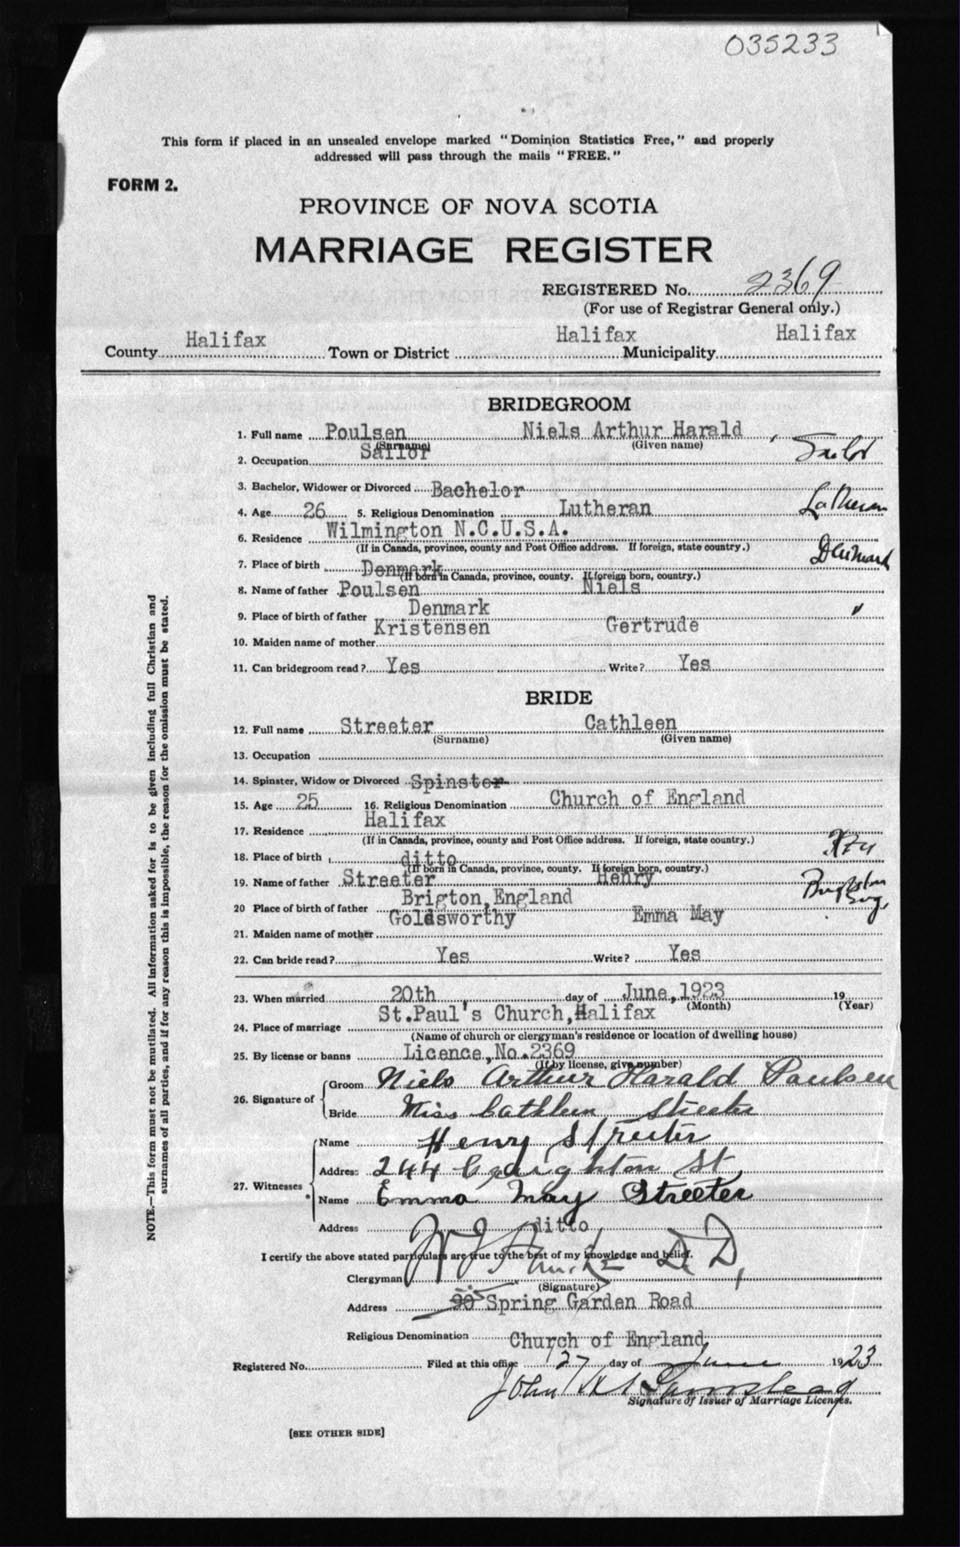 035233
This form if placed in an unsealed envelope marked "Dominion Statistics Free," and properly
addressed will pass through the mails "FREE."
FORM 2.
PROVINCE OF NOVA SCOTIA
MARRIAGE REGISTER
REGISTERED No. 2369
(For use of Registrar General only.)
County Halifax Town or District Halifax Municipality Halifax
BRIDEGROOM
1. Full name Poulsen Niels Arthur Harald
(Surname) (Given name)
2. Occupation Sailor Sailor
3. Bachelor, Widower or Divorced Bachelor
4. Age 26 5. Religious Denomination Lutheran Lutheran
6. Residence Wilmington N.C.U.S.A.
(If in Canada, province, county and Post Office address. If foreign, state country.)
7. Place of birth Denmark Denmark
(If born in Canada, province, county. If foreign born, country.)
8. Name of father Poulsen Niels
9. Place of birth of father Denmark "
10. Maiden name of mother Kristensen Gertrude
11. Can bridegroom read? Yes Write? Yes
BRIDE
12. Full name Streeter Cathleen
(Surname) (Given name)
13. Occupation
14. Spinster, Widow or Divorced Spinster
15. Age 25 16. Religious Denomination Church of England
17. Residence Halifax
(If in Canada, province, county and Post Office address. If foreign, state country.)
18. Place of birth ditto
(If born in Canada, province, county. If foreign born, country.)
19. Name of father Streeter Henry
20 Place of birth of father Brigton,England
21. Maiden name of mother Goldsworthy Emma May
22. Can bride read? Yes Write? Yes
23. When married 20th day of June,1923 19
(Month) (Year)
24. Place of marriage St.Paul's Church,Halifax
(Name of church or clergyman's residence or location of dwelling house)
25. By license or banns Licence,No.2369
(If by license, give number)
26. Signature of Groom Niels Arthur Harald Paulsen
Bride Miss Cathleen Streeter
27. Witnesses Name Henry Streeter
Address 244 Creighton St
Name Emma May Streeter
Address ditto
I certify the above stated particulars are true to the best of my knowledge and belief.
Clergyman D. D,
(Signature)
Address 90 Spring Garden Road
Religious Denomination Church of England
Registered No. Filed at this office 27 day of June 1923
John
Signature of Issuer of Marriage Licenses.
[SEE OTHER SIDE]
NOTE.—This form must not be mutilated. All information asked for is to be given including full Christian and
surnames of all parties, and if for any reason this is impossible, the reason for the omission must be stated.